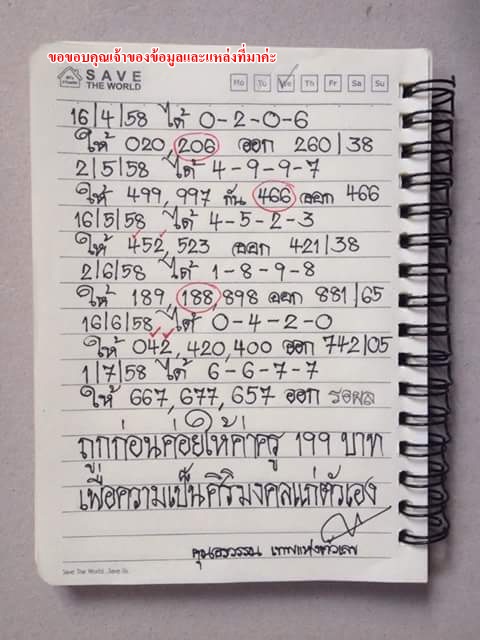 ขอขอบคุณเจ้าของข้อมูลและแหล่งที่มาค่ะ
SAVE
THE WORLD
Mo Tu We Th Fr Sa Su
16/4/58 ได้ 0-2-0-6
ให้ 020, 206 ออก 260/38
2/5/58 ได้ 4-9-9-7
ให้ 499, 997 กัน 466 ออก 466
16/5/58 ได้ 4-5-2-3
ให้ 452, 523 ออก 421/38
2/6/58 ได้ 1-8-9-8
ให้ 189, 188, 898 ออก 881/65
16/6/58 ได้ 0-4-2-0
ให้ 042, 420, 400 ออก 742/05
1/7/58 ได้ 6-6-7-7
ให้ 667, 677, 657 ออก รอผล
ถูกก่อนค่อยให้ค่าครู 199 บาท
เพื่อความเป็นศิริมงคลแก่ตัวเอง
เทพแห่งตัวเลข
Save The World , Save Us.